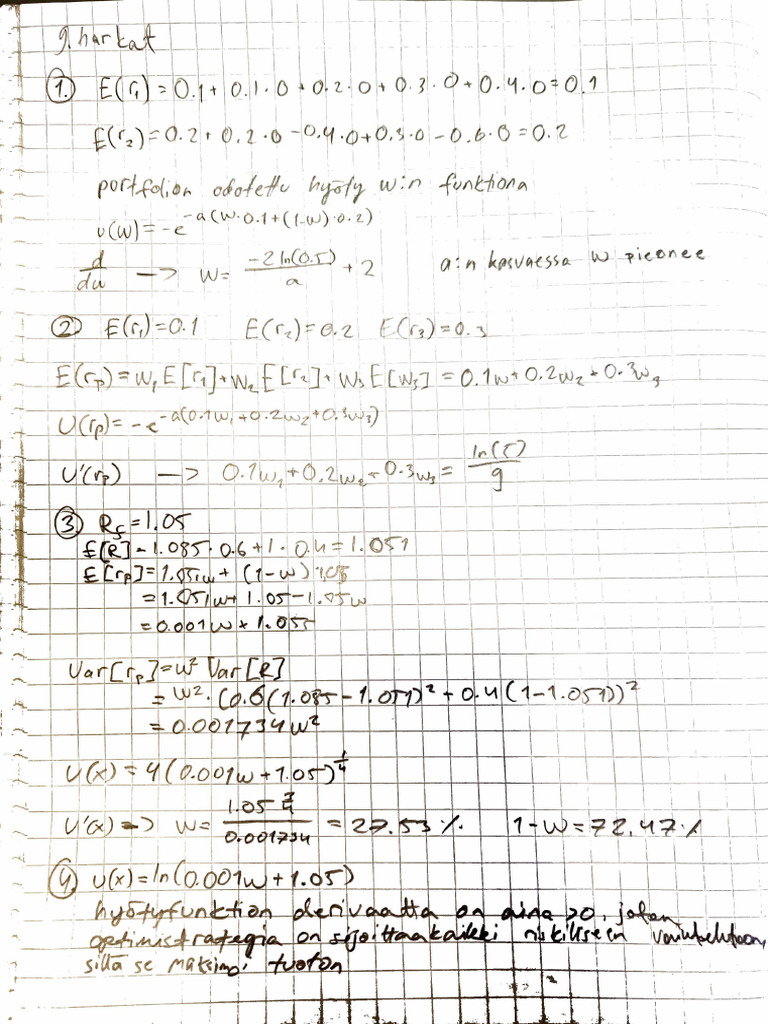 9. harkat
1. E(r₁)=0.1+0.1·0+0.2·0+0.3·0+0.4·0=0.1
E(r₂)=0.2+0.2·0-0.4·0+0.3·0-0.6·0=0.2
portfolion odotettu hyöty w:n funktiona
u(w)=-e^-a(w·0.1+(1-w)·0.2)
d/dw —> w= -2ln(0.5)/a + 2 a:n kasvaessa w pienenee
2 E(r₁)=0.1 E(r₂)=0.2 E(r₃)=0.3
E(rₚ)=w₁E[r₁]+w₂E[r₂]+w₃E[w₃]=0.1w+0.2w₂+0.3w₃
U(rₚ)=-e^-a(0.1w₁+0.2w₂+0.3w₃)
U'(rₚ) —> 0.1w₁+0.2w₂+0.3w₃=
3. R_f=1.05
E[R]=1.085·0.6+1·0.4=1.051
E[rₚ]=1.051w+(1-w)1.05
=1.051w+1.05-1.05w
=0.001w+1.05
Var[rₚ]=w² Var[R]
=w²·(0.6(1.085-1.051)²+0.4(1-1.051))²
=0.001734w²
U(x)=4(0.001w+1.05)^1/4
U'(x)—> w= /0.001734 = 27.53% 1-w=72.47%
4. u(x)=ln(0.001w+1.05)
hyötyfunktion derivaatta on aina >0, joten
optimistrategia on sijoittaa kaikki riskiseen
sillä se maksimoi tuoton